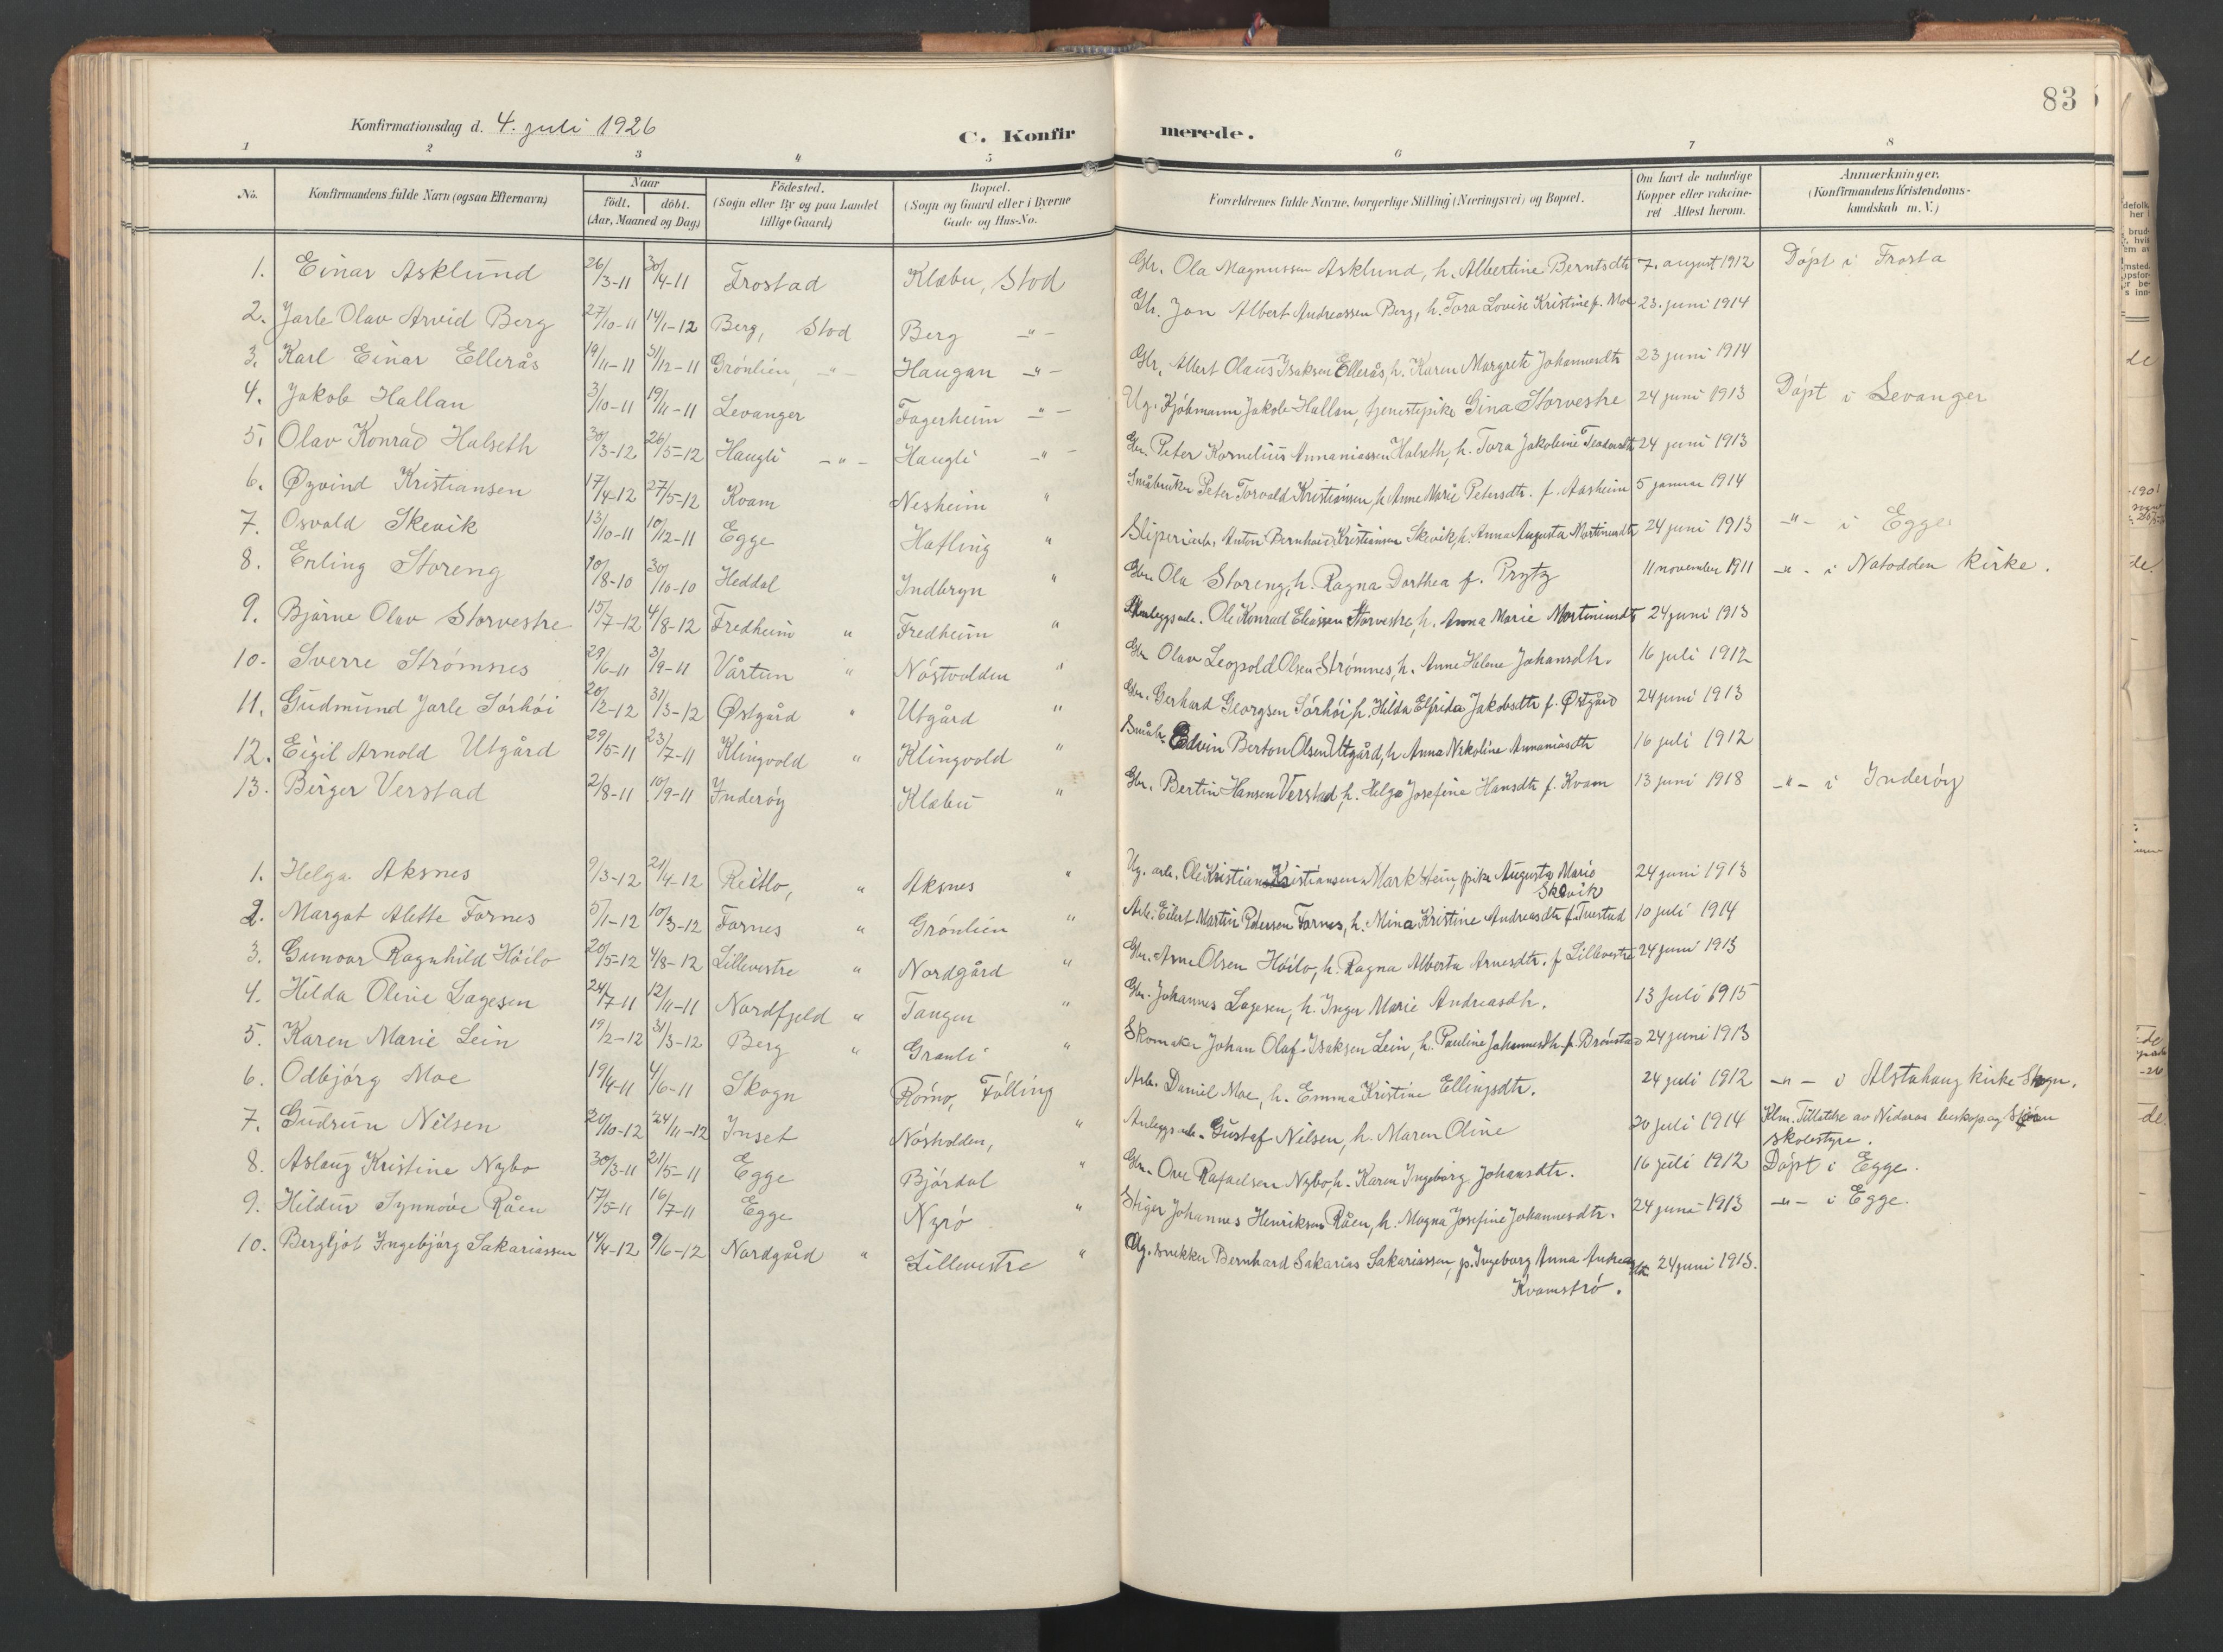 83
Konfirmationsdag d. 4. juli 1926
C. Konfirmerede.
1 2 3 4 5 6 7 8
No. Konfirmandens fulde Navn (ogsaa Efternavn) Naar født. døbt. (Aar, Maaned og Dag) Födested. (Sogn eller By og paa Landet tillige Gaard) Bopæl. (Sogn og Gaard eller i Byerne Gade og Hus-No. Forældrenes fulde Navne, borgerlige Stilling (Næringsvei) og Bopæl. Om havt de naturlige Kopper eller vakcineret Attest herom. Anmærkninger. (Konfirmandens Kristendomskundskab m. V.)
1. Einar Asklund 26/3-11 30/4-11 Frostad Klæbu, Stod Gbr. Ola Magnussen Asklund, h. Albertine Berntsdtr 7. august 1912 Döpt i Frosta
2. Jarle Olav Arvid Berg 27/10-11 14/1-12 Berg, Stod Berg -"- Gbr. Jon Albert Andreassen Berg, h. Tora Lovise Kristine f. Moe 23. juni 1914
3. Karl Einar Ellerås 19/11-11 31/12-11 Grönlien, -"- Haugan -"- Gbr. Albert Olaus Isaksen Ellerås, h. Karen Margrete Johannesdtr 23 juni 1914
4. Jakob Hallan 3/10-11 19/11-11 Levanger Fagerheim -"- Ug. Kjöbmann Jakob Hallan, tjenestepike Gina Storvestre 24 juni 1913 Döpt i Levanger
5. Olav Konrad Halseth 30/3-12 26/5-12 Haugli -"- Haugli -"- Gbr. Peter Kornelius Annaniassen Halseth, h. Tora Jakobine 24 juni 1913
6. Øyvind Kristiansen 17/4-12 27/5-12 Kvam Nesheim " Småbruker Peter Torvald Kristiansen, h. Anne Marie Petersdtr. f. Aasheim 5 januar 1914
7. Osvald Skevik 13/10-11 10/12-11 Egge Hafling " Sliperiarb. Anton Bernhard Kristiansen Skevik, h. Anna Augusta Martinusdtr 24 juni 1913 -"- i Egge
8. Erling Storeng 10/8-10 30/10-10 Heddal Indbryn " Gbr. Ola Storeng, h. Ragna Dorthea f. Prytz 11 november 1911 -"- i Notodden kirke.
9. Bjarne Olav Storvestre 15/7-12 4/8-12 Fredheim " Fredheim " Anleggsarb. Ole Konrad Eliassen Storvestre, h. Anna Marie Martiniusdtr 24 juni 1913
10. Sverre Strömnes 29/6-11 3/9-11 Vårtun " Nöstvolden " Gbr Olav Leopold Olsen Strömnes, h. Anne Helene Johansdtr. 16 juli 1912
11. Gudmund Jarle Sörhöi 20/2-12 31/3-12 Østgård " Utgård " Gbr. Gerhard Georgsen Sörhöi, h. Hilda Elfrida Jakobsdtr f. Østgård 24 juni 1913
12. Eigil Arnold Utgård 29/5-11 23/7-11 Klingvold " Klingvold " Småbr. Edvin Berton Olsen Utgård, h Anna Nikoline Annaniasdtr 16 juli 1912
13. Birger Verstad 2/8-11 10/9-11 Inderöy Klæbu " Gbr. Bertin Hansen Verstad, h. Helga Josefine Hansdtr f. Kvam 13 juni 1918 -"- i Inderöy
1. Helga Aksnes 9/3-12 21/4-12 Reitlo, " Aksnes " Ug. arb. Ole Kristian Kristiansen Markstein, pike Augusta Marie 24 juni 1913
Skevik
2. Margot Alette Fornes 5/1-12 10/3-12 Fornes " Grönlien " Arb. Eilert Martin Petersen Fornes, h. Mina Kristine Andreasdtr f. Tuestad 10 juli 1914
3. Gunvor Ragnhild Höilo 20/5-12 4/8-12 Lillevestre " Nordgård " Gbr. Arne Olsen Höilo, h. Ragna Alberta Arnesdtr. f Lillevestre 24 juni 1913
4. Hilda Oline Lagesen 24/7-11 12/11-11 Nordfjeld " Tangen " Gbr. Johannes Lagesen, h. Inger Marie Andreasdtr. 13 juli 1915
5. Karen Marie Lein 19/2-12 31/3-12 Berg " Granli " Skomaker Johan Olaf Isaksen Lein, h. Pauline Johannesdtr. f. Brönstad 24 juni 1913
6. Odbjörg Moe 19/4-11 4/6-11 Skogn Römo, Fölling Arb. Daniel Moe, h. Emma Kristine Ellingsdtr. 24 juli 1912 -"- i Alstahaug kirke Skogn.
7. Gudrun Nilsen 20/10-12 24/11-12 Inset Nösholden, " Anleggsarb. Gustaf Nilsen, h. Maren Oline 20 juli 1914 Klm. Tillatelse av Nidaros biskop og
skolestyre.
8. Aslaug Kristine Nybo 30/3-11 21/5-11 Egge Björdal " Gbr. Ove Rafaelsen Nybo, h. Karen Ingeborg Johansdtr. 16 juli 1912 Döpt i Egge.
9. Hildur Synnöve Råen 17/5-11 16/7-11 Egge Nyrö " Stiger Johannes Henriksen Råen, h. Magna Josefine Johannesdtr. 24 juni 1913 -"- i Egge.
10. Bergljot Ingebjörg Sakariassen 14/4-12 9/6-12 Nordgård " Lillevestre " Ug. snekker Bernhard Sakarias Sakariassen, p. Ingeborg Anna 24 juni 1913.
Kvamströ.